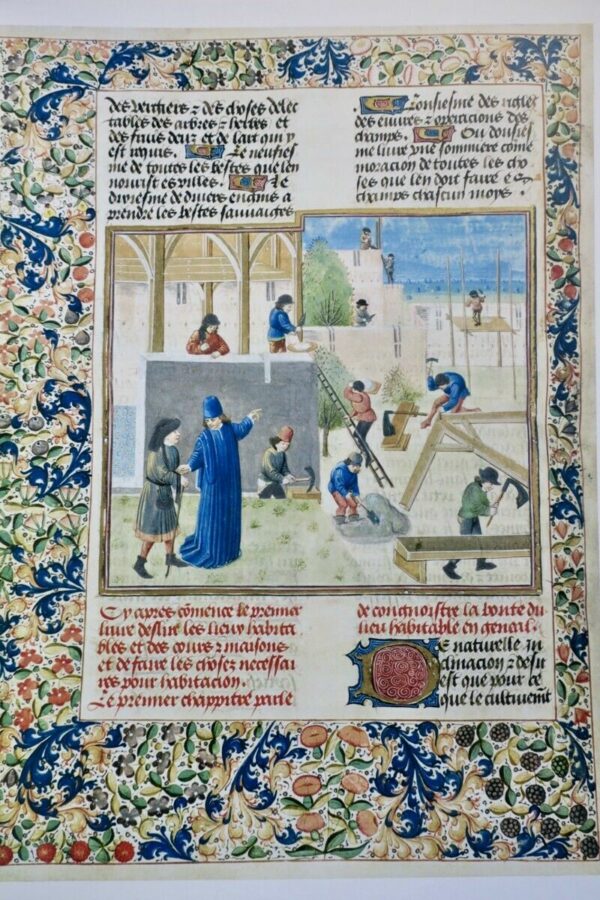 des vergiers ⁊ des choses delec
tables des arbres ⁊ herbes et
des fruis deux et de lart qui y
est requis. Le neufies
me de toutes les bestes que len
nourist es villes. Le
dixiesme de divers engins a
prendre les bestes sauvaiges
Lonsiesme des rigles
des euvres ⁊ operacions des
champs. Ou dousies
me livre une sommiere cōme
moracion de toutes les cho
ses que len doit faire es
champs chascun moys.
Cy apres cōmence le premier
livre des lieux habita
bles et des cours ⁊ maisons
et de faire les choses necessai
res pour habitacion.
Le premier chappitre parle
de congnoistre la bonte du
lieu habitable en general.
De naturelle in
clinacion ⁊ desir
est que pour ce
que le cultivemēt